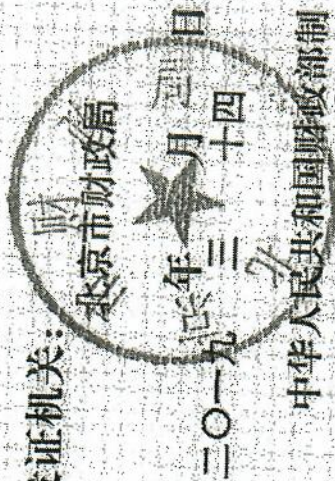 证机关：
北京市财政局
二〇一九年三月十四日
中华人民共和国财政部制